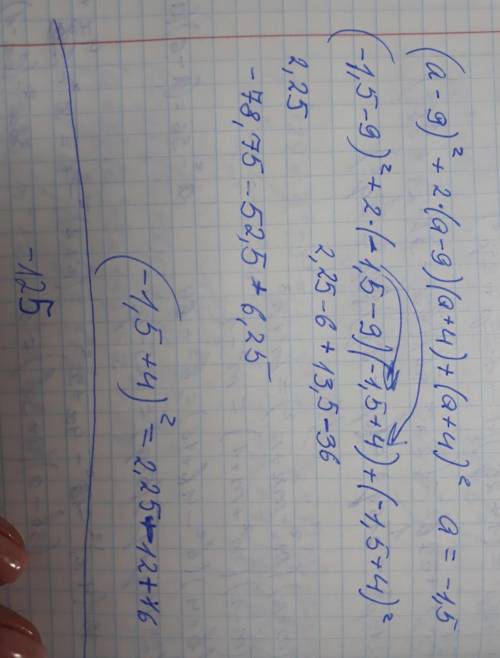 (a - 9)² + 2·(a-9)(a+4)+(a+4)² a = -1,5
(-1,5-9)² + 2·(-1,5-9)(-1,5+4)+(-1,5+4)²
2,25 2,25-6+13,5-36
-78,75-52,5+6,25
(-1,5+4)² = 2,25-12+16
-125